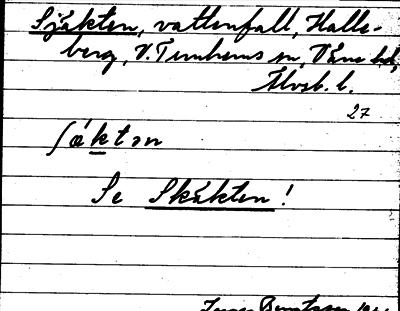 Sjäkten, vattenfall, Halle-
berg, V. Tunhems sn, Väne hd,
Älvsb. l.
27
ʃǽktən
Se Skäkten!
Bengtsson